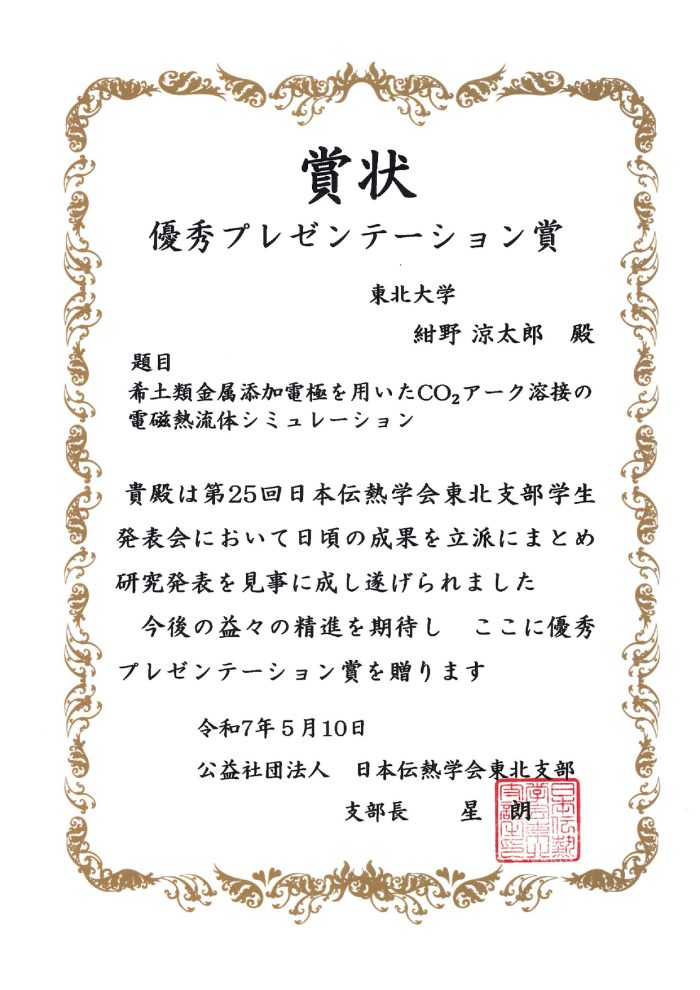 賞状
優秀プレゼンテーション賞
東北大学
紺野 涼太郎　殿
題目
希土類金属添加電極を用いたCO₂アーク溶接の
電磁熱流体シミュレーション
貴殿は第25回日本伝熱学会東北支部学生
発表会において日頃の成果を立派にまとめ
研究発表を見事に成し遂げられました
今後の益々の精進を期待し　ここに優秀
プレゼンテーション賞を贈ります
令和7年５月10日
公益社団法人　日本伝熱学会東北支部
支部長　　星　朗